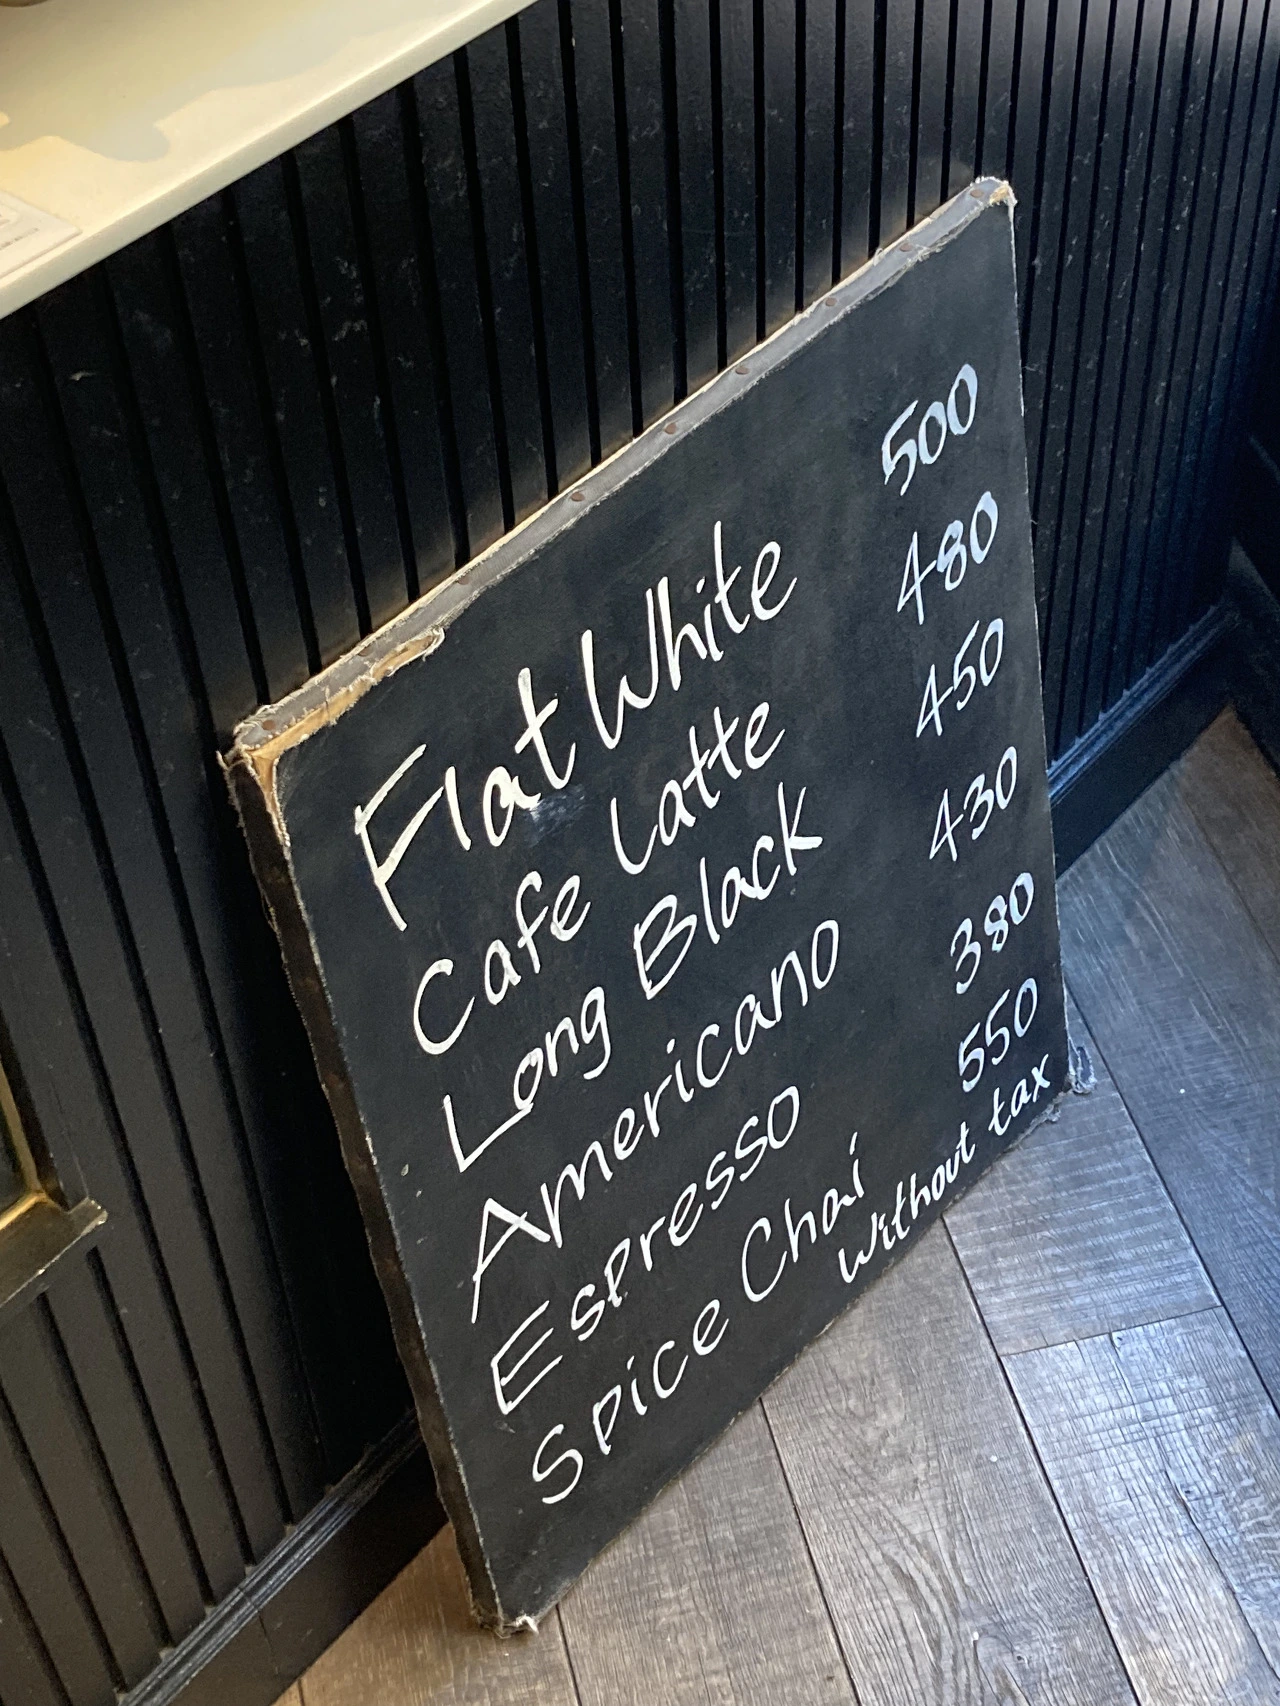 Flat White 500
Cafe Latte 480
Long Black 450
Americano 430
Espresso 380
Spice Chai 550
Without tax